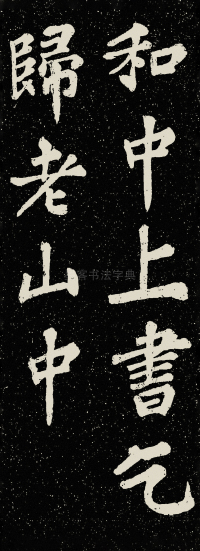 和中上書乞
歸老山中
書法字典